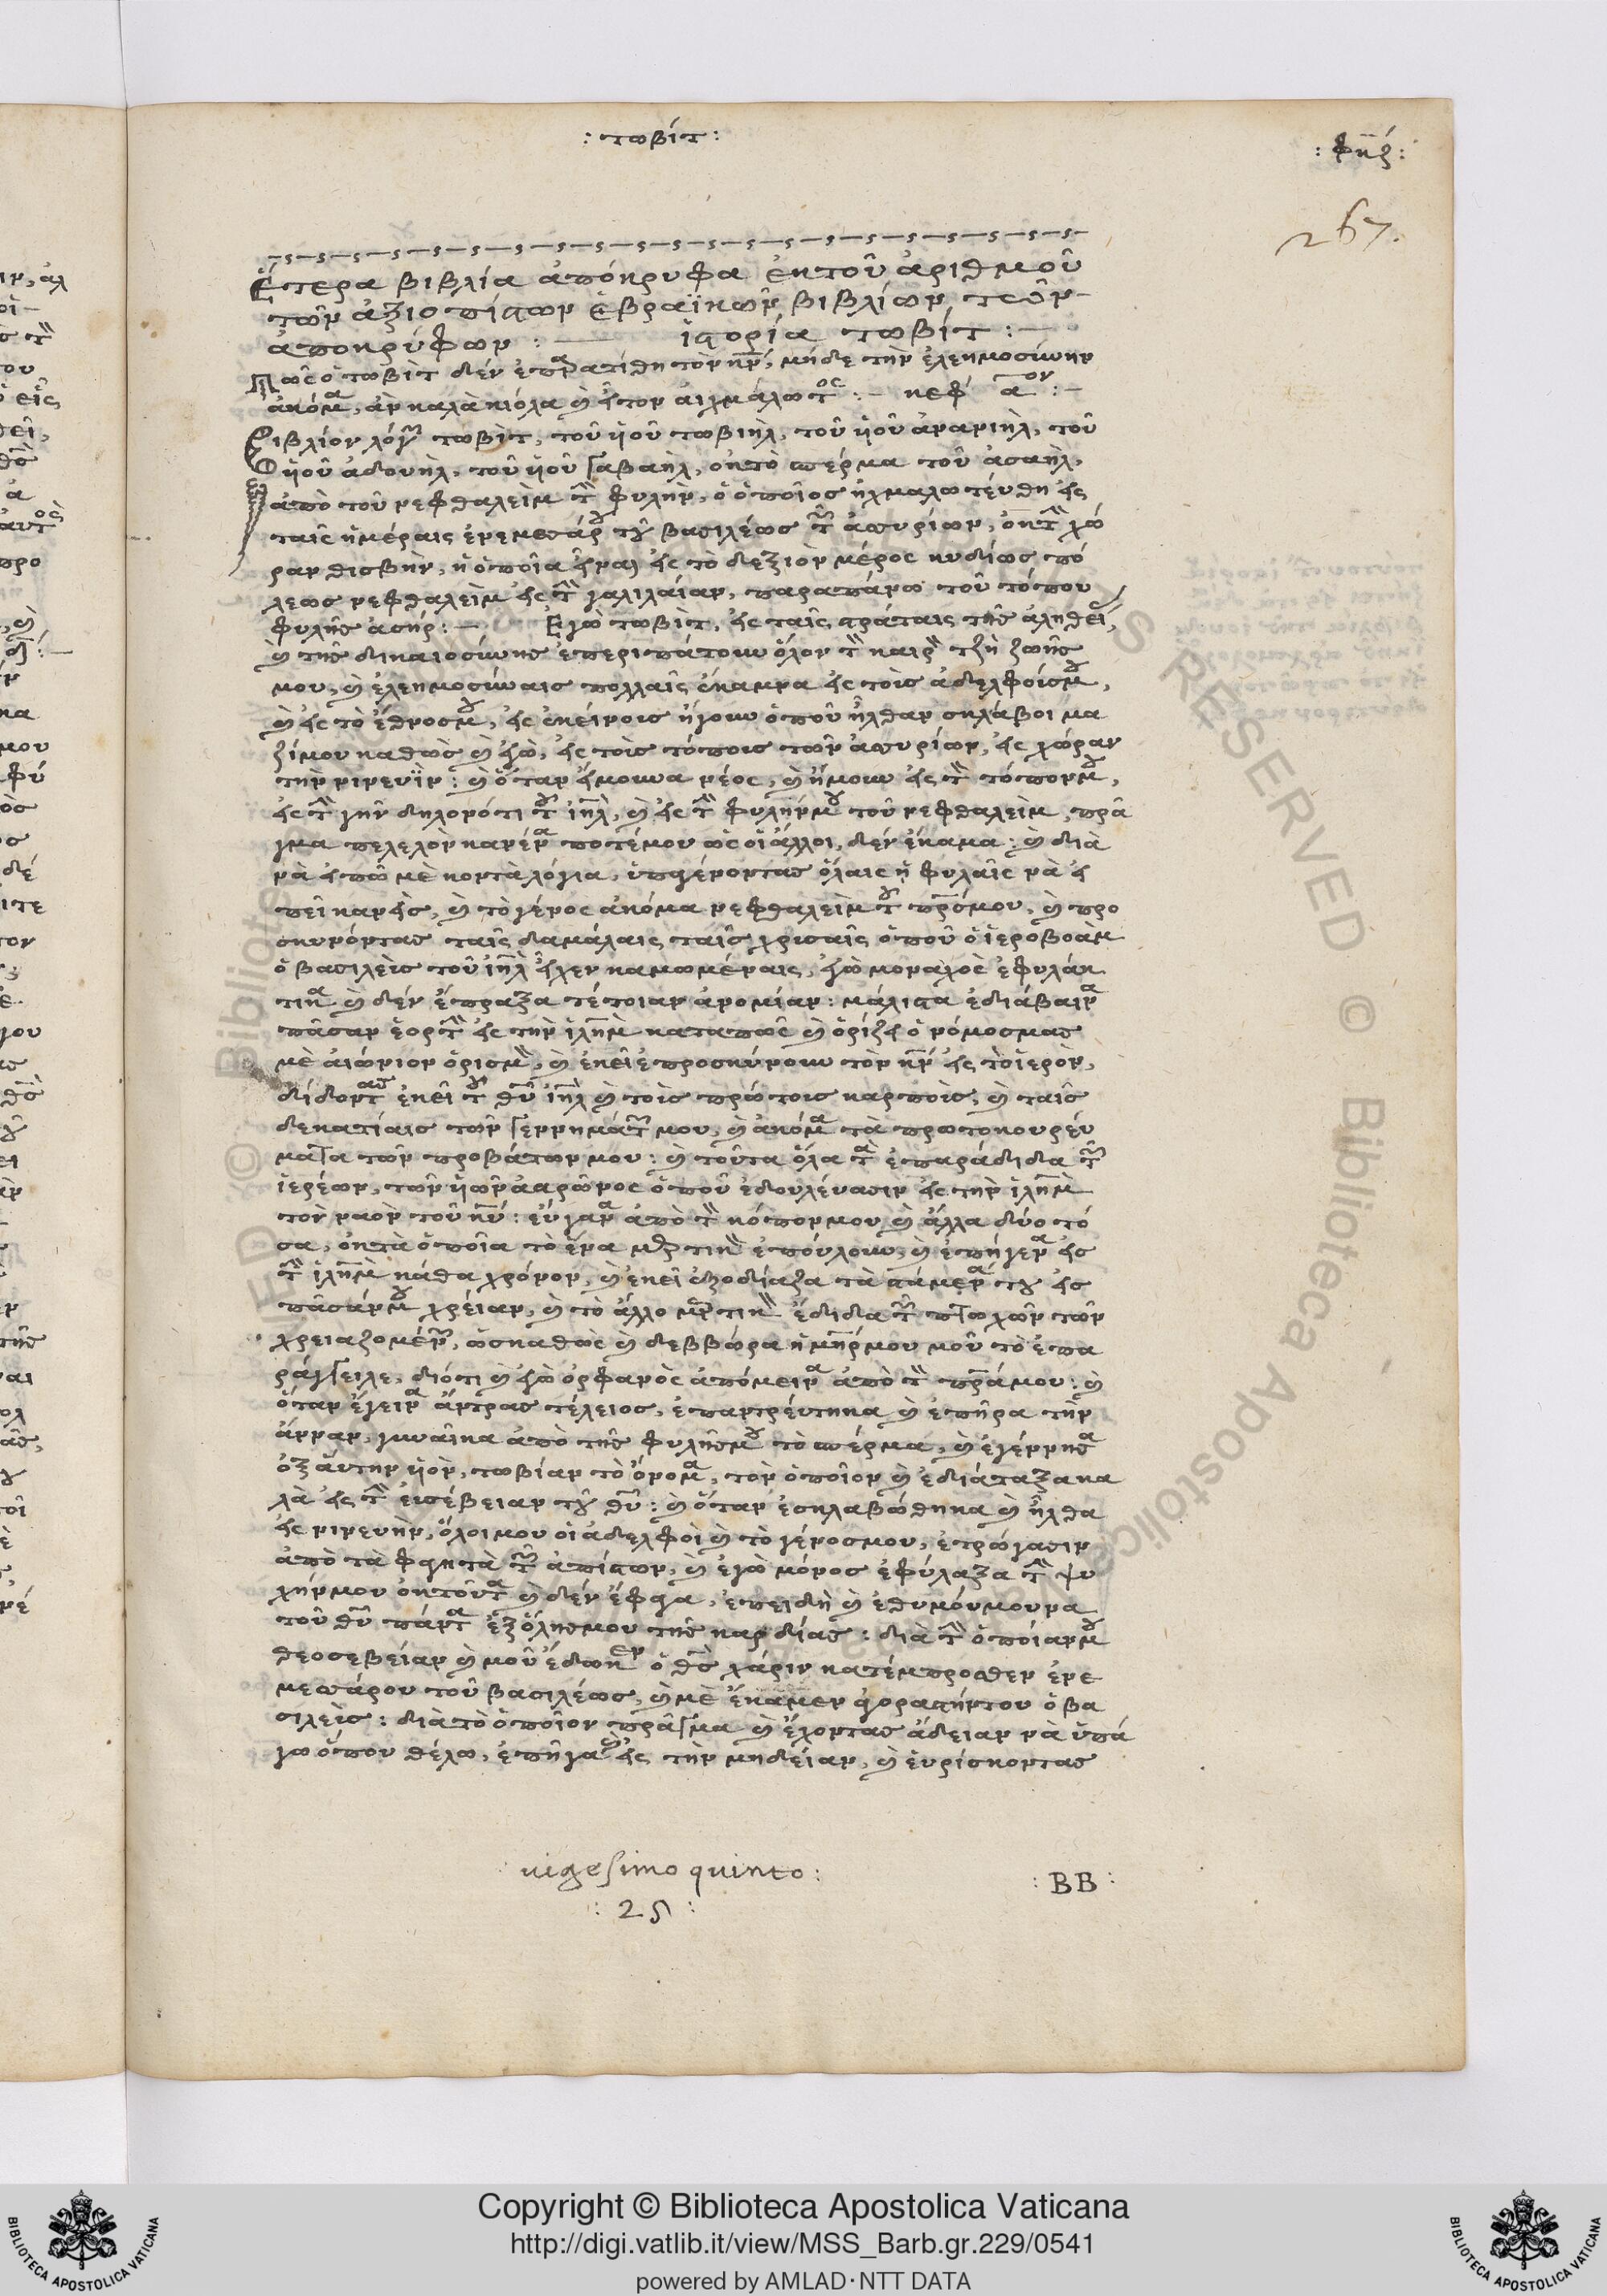 : τωβίτ :
: φπζ :
267.
Ἕτερα βιβλία ἀπόκρυφα ἐκτοῦ ἀριθμοῦ
τῶν ἀξιοπίστων ἑβραϊκῶν βιβλίων
ἀποκρύφων : — ἱστορία τωβίτ : —
Πῶς ὁ τωβὶτ δὲν μήδε τὴν ἐλεημοσύνην
ἀκόμα, ἂν καλὰ κιόλα : — κεφ αον : —
Βιβλίον λόγων τωβὶτ, τοῦ ὑοῦ τωβιὴλ, τοῦ ὑοῦ ἀνανιὴλ, τοῦ
ὑοῦ ἀδουὴλ, τοῦ ὑοῦ γαβαὴλ, ἐκτὸ σπέρμα τοῦ ἀσαὴλ,
ἀπὸ τοῦ νεφθαλεὶμ τὴν φυλὴν, ὁ ὁποῖος ἠχμαλωτεύθη εἰς
ταῖς ἡμέραις ἐνεμεσάρου τοῦ βασιλέως τῶν ἀσσυρίων, ἐκτὴν χώ
ραν θισβὴν, ἡ ὁποῖα εἶναι εἰς τὸ δεξιὸν μέρος κυδίως πό
λεως νεφθαλεὶμ εἰς τὴν γαλιλαίαν, παραπάνω τοῦ τόπου
φυλῆς ἀσήρ : — Εγὼ τωβὶτ, εἰς ταῖς στράταις τῆς ἀληθεί,
καὶ τῆς δικαιοσύνης ἐπεριπάτουν ὅλον τὸν καιρὸν τῆς ζωῆς
μου, καὶ ἐλεημοσύναις πολλαῖς ἔκαμνα εἰς τοὶς ἀδελφοίσμου,
καὶ εἰς τὸ ἔθνοσμου, εἰς ἐκείνοις ἤγουν ὁποῦ ἦλθαν σκλάβοι μα
ζίμου καθὼς καὶ ἐγὼ, εἰς τοὶς τόποις τῶν ἀσσυρίων, εἰς χώραν
τὴν νινευῒν : καὶ ὅταν ἤμουνα νέος, καὶ ἤμουν εἰς τὸν τόπονμου,
εἰς τὴν γῆν δηλονότι τοῦ ἰηλ, καὶ εἰς τὴν φυλήνμου τοῦ νεφθαλεὶμ, πρᾶ
γμα πελελὸν κανένα ποτέμου ὡς οἱ ἄλλοι, δὲν ἔκαμα : καὶ διὰ
νὰ εἰπῶ μὲ κοντὰ λόγια, ὑπαγένοντας ὅλαις ἡ φυλαῖς νὰ εἰ
πεῖ κανεὶς, καὶ τὸ γένος ἀκόμα νεφθαλεὶμ τοῦ προσμου, καὶ προ
σκυνόντας ταῖς δαμάλαις ταῖς χρισαῖς ὁποῦ ὁ ἱεροβοὰμ
ὁ βασιλεὶς τοῦ ἰηλ εἶχεν καμωμέναις, ἐγὼ μοναχὸς ἐφυλάκ
τικα καὶ δὲν ἔπραξα τέτοιαν ἀνομίαν : μάλιστα ἐδιάβαινα
πᾶσαν ἑορτὴν εἰς τὴν ἱλημ καταπῶς καὶ ὁρίζει ὁ νόμοσμας
μὲ αἰώνιον ὁρισμὸν, καὶ ἐκεῖ ἐπροσκύνουν τὸν κν εἰς τὸ ἱερὸν,
δίδοντας ἐκεῖ τοῦ θυ ἰηλ καὶ τοὶς πρώτοις καρποὶς, καὶ ταῖς
δεκατίαις τῶν γεννημάτων μου, καὶ ἀκόμα τὰ πρωτοκουρεύ
ματα τῶν προβάτων μου : καὶ τοῦτα ὅλα τὰ ἐπαράδιδα τῶν
ἱερέων, τῶν ὑῶν ἀαρῶνος ὁποῦ ἐδουλεύασιν εἰς τὴν ἱλημ
τὸν ναὸν τοῦ κυ : εὔγανα ἀπὸ τὸν κόπονμου καὶ ἄλλα δύο τό
σα, ἐκτὰ ὁποῖα τὸ ἕνα ἐπούλουν, καὶ ἐπήγενα εἰς
τὴν ἱλημ κάθα χρόνον, καὶ ἐκεῖ ἐξοδίαζα τὰ εἰς
πᾶσάνμου χρείαν, καὶ τὸ ἄλλο ἔδιδα τῶν πτωχῶν τῶν
χρειαζομένων, ὡσκαθὼς καὶ δεββώρα ἡ μηρμου μοῦ τὸ ἐπα
ράγγειλε, διότι καὶ ἐγὼ ὀρφανὸς ἀπόμεινα ἀπὸ τὸν πρᾱμου : καὶ
ὅταν ἔγεινα ἄντρας τέλειος, ἐπαντρεύτηκα καὶ ἐπῆρα τὴν
ἄνναν, γυναῖκα ἀπὸ τῆς φυλῆσμου τὸ σπέρμα, καὶ ἐγέννησα
ἐξ αὕτην ὑὸν, τωβίαν τὸ ὄνομα, τὸν ὁποῖον καὶ ἐδιάταξα κα
λὰ εἰς τὴν εὐσέβειαν τοῦ θυ : καὶ ὅταν ἐσκλαβώθηκα καὶ ἦλθα
εἰς νινευὴν, ὅλοι μου οἱ ἀδελφοὶ καὶ τὸ γένοσμου, ἐτρώγασιν
ἀπὸ τὰ φαητὰ τῶν ἀπίστων, καὶ ἐγὼ μόνος ἐφύλαξα τὴν ψυ
χήνμου ἐκτοῦτα καὶ δὲν ἔφαα, ἐπειδὴ καὶ ἐθυμούμουνα
τοῦ θυ πάντα ἐξόλησμου τῆς καρδίας : διὰ τὴν ὁποίανμου
θεοσεβείαν καὶ μοῦ ἔδωκεν ὁ θς χάριν κατέμπροσθεν ἐνε
μεσάρου τοῦ βασιλέως, καὶ μὲ ἔκαμεν ἀγοραστήντου ὁ βα
σιλεὶς : διὰ τὸ ὁποῖον πρᾶγμα καὶ ἔχοντας ἄδειαν νὰ ὑπά
γω ὅπου θέλω, ἐπῆγα καὶ εἰς τὴν μηδείαν, καὶ εὑρίσκοντας
uigesimo quinto :
: 25 :
: BB :
Copyright © Biblioteca Apostolica Vaticana
http://digi.vatlib.it/view/MSS_Barb.gr.229/0541
powered by AMLAD·NTT DATA